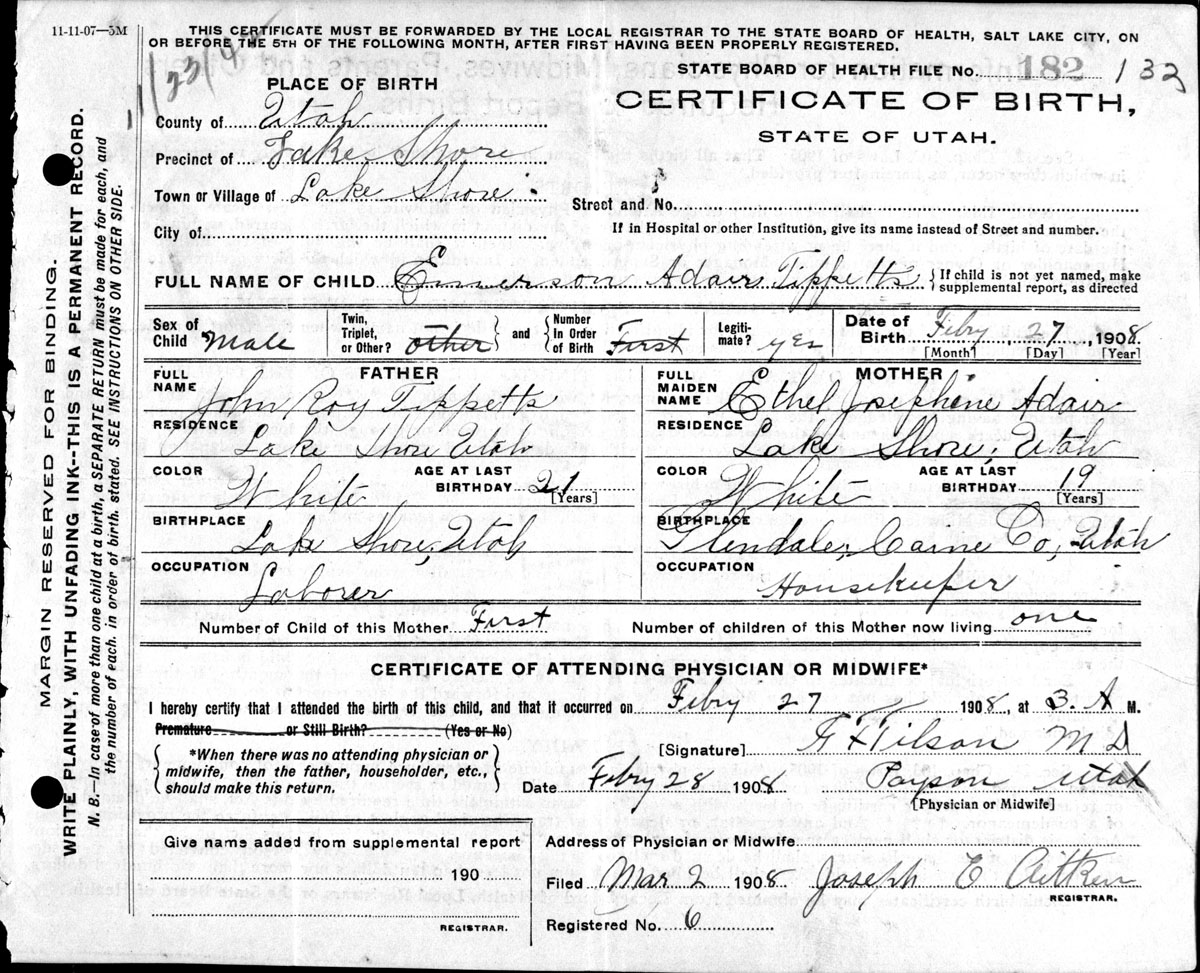 11-11-07—5M
THIS CERTIFICATE MUST BE FORWARDED BY THE LOCAL REGISTRAR TO THE STATE BOARD OF HEALTH, SALT LAKE CITY, ON
OR BEFORE THE 5TH OF THE FOLLOWING MONTH, AFTER FIRST HAVING BEEN PROPERLY REGISTERED.
STATE BOARD OF HEALTH FILE NO. 182 132
PLACE OF BIRTH
CERTIFICATE OF BIRTH,
STATE OF UTAH.
County of Utah
Precinct of Lake Shore
Town or Village of Lake Shore
Street and No.
City of
If in Hospital or other Institution, give its name instead of Street and number.
FULL NAME OF CHILD Emerson Adair Tippetts { If child is not yet named, make supplemental report, as directed
Sex of Child Male
Twin, Triplet, or Other? Other and Number In Order of Birth First
Legitimate? yes
Date of Birth Feby 27, 1908
[Month] [Day] [Year]
FATHER
FULL NAME John Roy Tippetts
RESIDENCE Lake Shore Utah
COLOR White
AGE AT LAST BIRTHDAY 21 [Years]
BIRTHPLACE Lake Shore, Utah
OCCUPATION Laborer
MOTHER
FULL MAIDEN NAME Ethel Josephine Adair
RESIDENCE Lake Shore, Utah
COLOR White
AGE AT LAST BIRTHDAY 19 [Years]
BIRTHPLACE Glendale, Carne Co, Utah
OCCUPATION Housekeeper
Number of Child of this Mother First
Number of children of this Mother now living one
CERTIFICATE OF ATTENDING PHYSICIAN OR MIDWIFE*
I hereby certify that I attended the birth of this child, and that it occurred on Feby 27 1908, at 3. A M.
Premature or Still Birth? (Yes or No)
*When there was no attending physician or
midwife, then the father, householder, etc.,
should make this return.
[Signature] Tilson M D
Date Feby 28 1908 Payson Utah
[Physician or Midwife]
Give name added from supplemental report
190
REGISTRAR.
Address of Physician or Midwife
Filed Mar 2 1908 Joseph E Aitken
REGISTRAR.
Registered No. 6
MARGIN RESERVED FOR BINDING.
WRITE PLAINLY, WITH UNFADING INK--THIS IS A PERMANENT RECORD.
N. B.—In case of more than one child at a birth, a SEPARATE RETURN must be made for each, and
the number of each, in order of birth, stated. SEE INSTRUCTIONS ON OTHER SIDE.